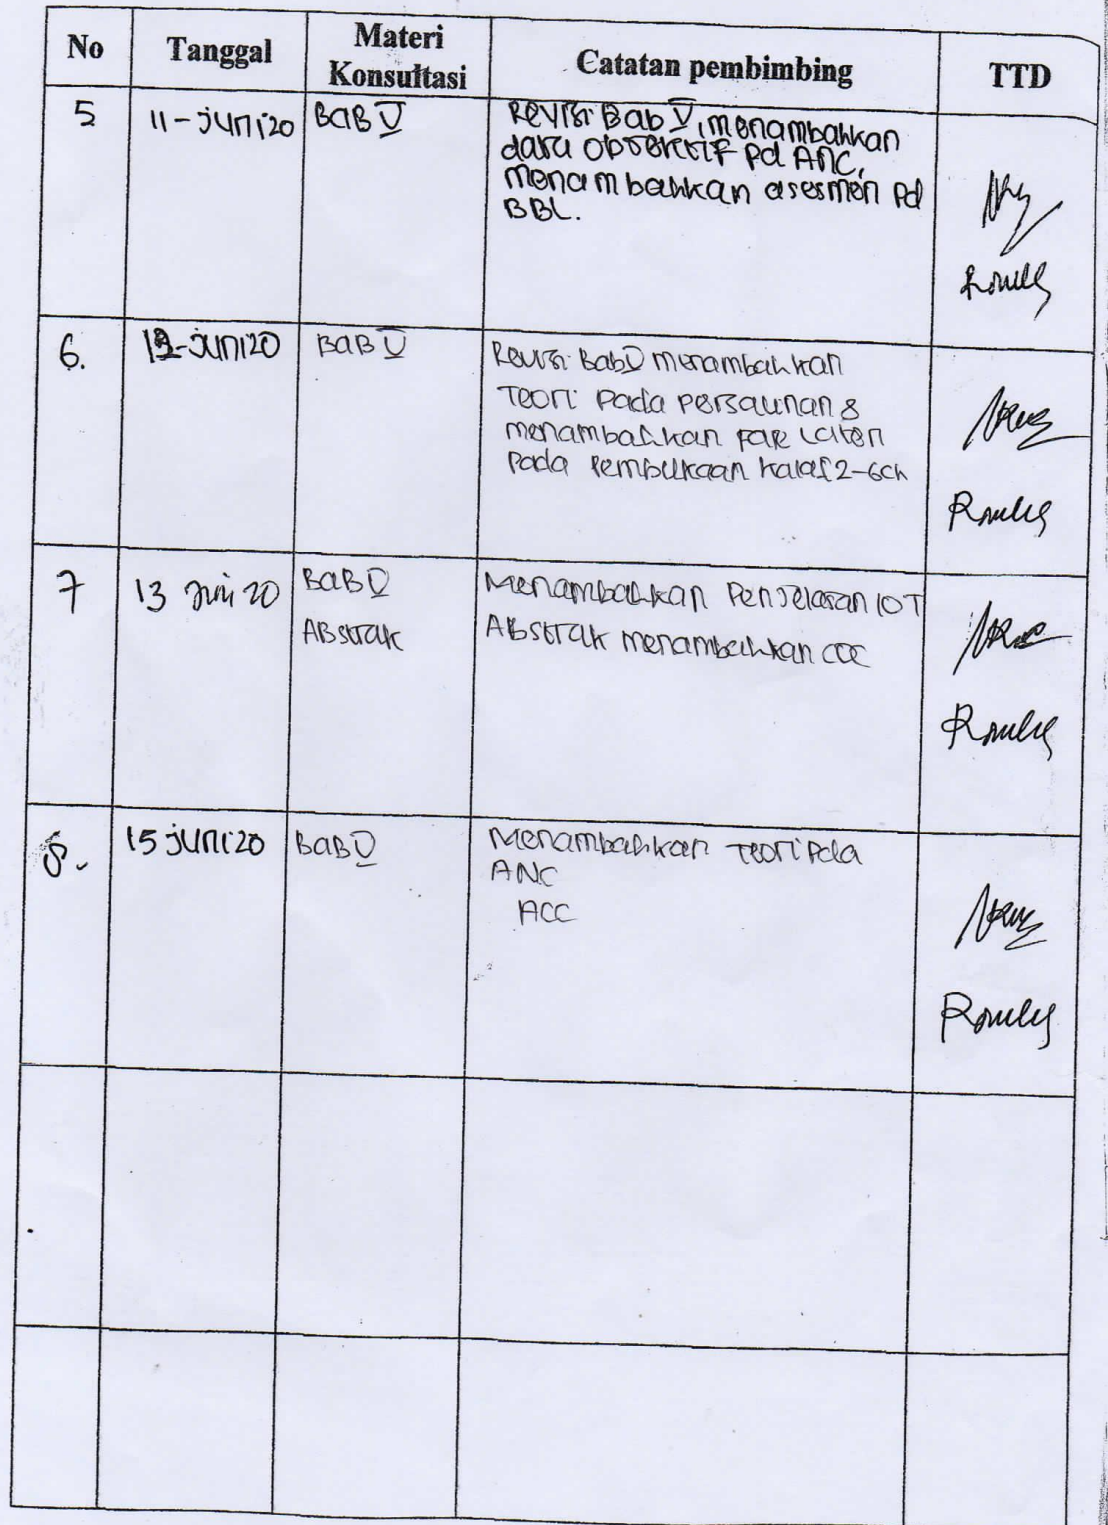 No Tanggal Materi Konsultasi Catatan pembimbing TTD
5 11-juni 20 BAB V Revisi Bab V, menambahkan
data objektif pd ANC,
menambahkan asesmen pd
BBL.
6. 12-juni 20 BAB V Revisi Bab V menambahkan
Teori pada persalinan &
menambahkan
pada pembukaan
7 13 Juni 20 BAB V Menambahkan Penjelasan
Abstrak Abstrak menambahkan COC
8. 15 juni 20 BAB V Menambahkan Teori pda
ANC
ACC